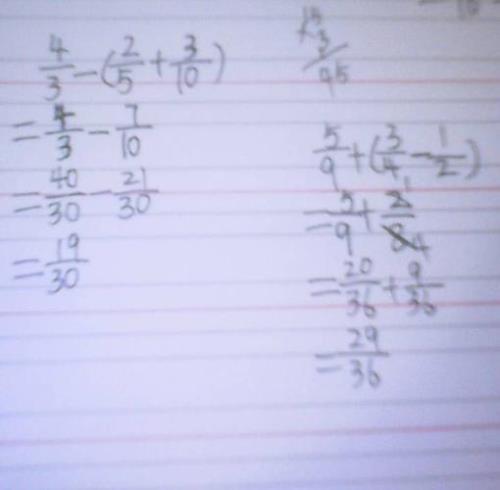 4/3 - (2/5 + 3/10)
= 4/3 - 7/10
= 40/30 - 21/30
= 19/30
5/9 + (3/4 - 1/2)
= 5/9 + 2/8 1/4
= 20/36 + 9/36
= 29/36